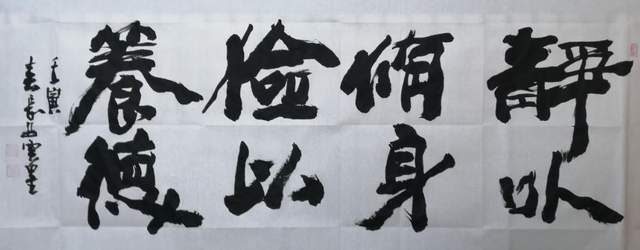 靜以
脩身
儉以
養德
壬寅